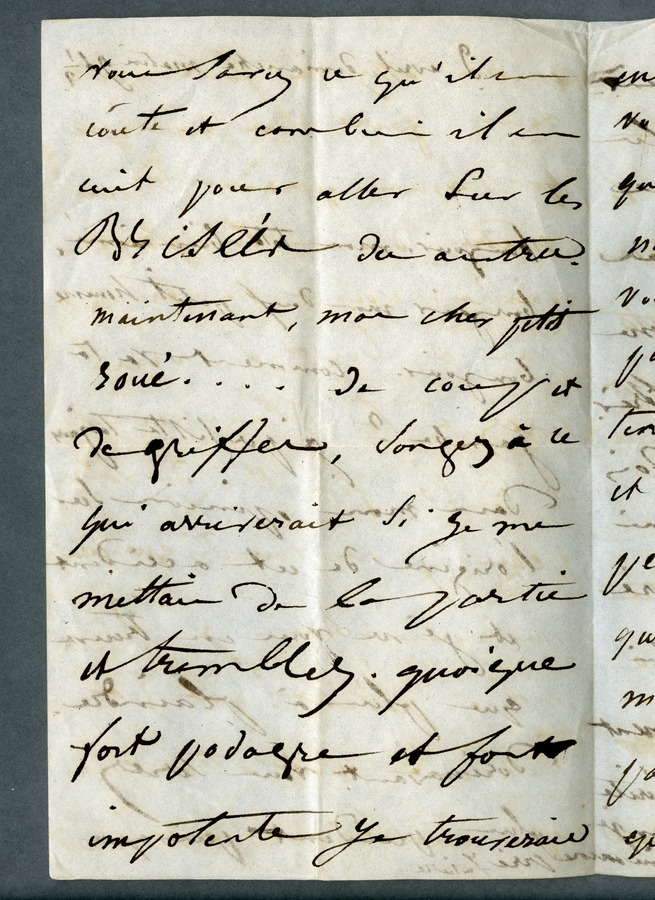 vous savez ce qu'il en
coûte et combien il en
cuit pour aller sur les
BRISÉES des autres.
maintenant, mon cher petit
roué.... de coups et
de griffes, songez à ce
qui arriverait si je me
mettais de la partie
et tremblez. quoique
fort podagre et fort
impotente je trouverais